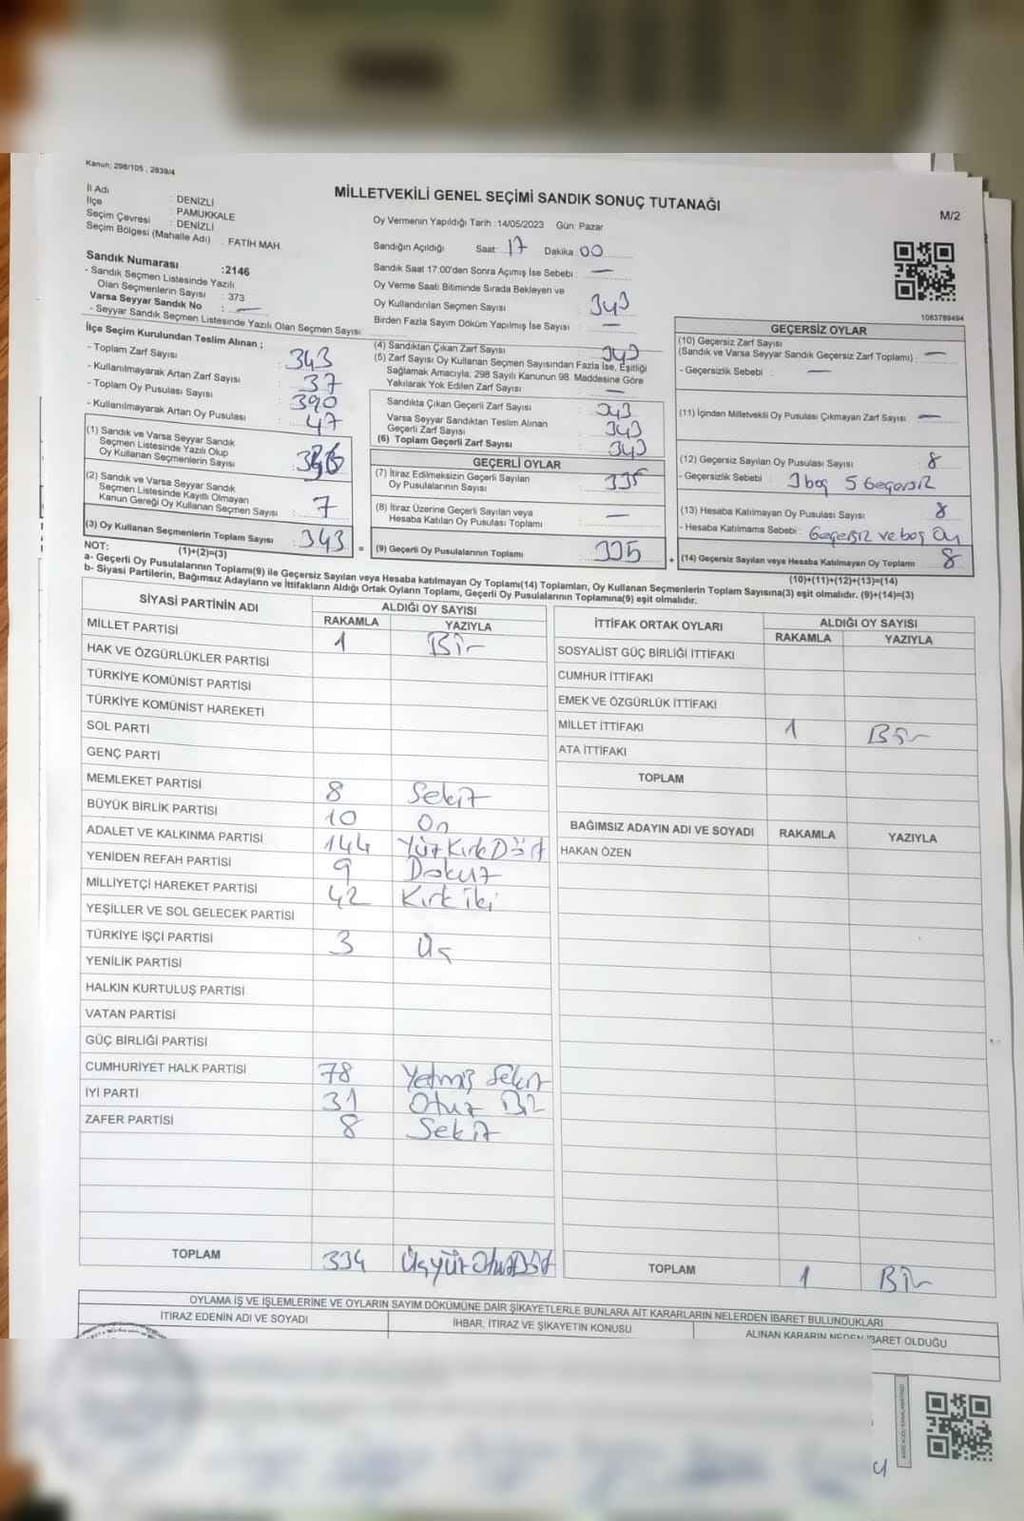 Kanun: 298/105 , 2839/4
MİLLETVEKİLİ GENEL SEÇİMİ SANDIK SONUÇ TUTANAĞI
M/2
İl Adı : DENİZLİ
İlçe : PAMUKKALE
Seçim Çevresi : DENİZLİ
Seçim Bölgesi (Mahalle Adı) : FATİH MAH.
Sandık Numarası :2146
- Sandık Seçmen Listesinde Yazılı
Olan Seçmenlerin Sayısı : 373
Varsa Seyyar Sandık No : —
- Seyyar Sandık Seçmen Listesinde Yazılı Olan Seçmen Sayısı
Oy Vermenin Yapıldığı Tarih :14/05/2023 Gün: Pazar
Sandığın Açıldığı Saat: 17 Dakika 00
Sandık Saat 17:00'den Sonra Açımış İse Sebebi : —
Oy Verme Saati Bitiminde Sırada Bekleyen ve
Oy Kullandırılan Seçmen Sayısı 343
Birden Fazla Sayım Döküm Yapılmış İse Sayısı : —
1083789494
İlçe Seçim Kurulundan Teslim Alınan ;
- Toplam Zarf Sayısı : 343
- Kullanılmayarak Artan Zarf Sayısı : 37
- Toplam Oy Pusulası Sayısı : 390
- Kullanılmayarak Artan Oy Pusulası : 47
(1) Sandık ve Varsa Seyyar Sandık
Seçmen Listesinde Yazılı Olup
Oy Kullanan Seçmenlerin Sayısı :
(2) Sandık ve Varsa Seyyar Sandık
Seçmen Listesinde Kayıtlı Olmayan
Kanun Gereği Oy Kullanan Seçmen Sayısı : 7
(3) Oy Kullanan Seçmenlerin Toplam Sayısı : 343
(1)+(2)=(3)
(4) Sandıktan Çıkan Zarf Sayısı : 343
(5) Zarf Sayısı Oy Kullanan Seçmen Sayısından Fazla İse, Eşitliği
Sağlamak Amacıyla, 298 Sayılı Kanunun 98. Maddesine Göre
Yakılarak Yok Edilen Zarf Sayısı : —
Sandıkta Çıkan Geçerli Zarf Sayısı : 343
Varsa Seyyar Sandıktan Teslim Alınan
Geçerli Zarf Sayısı : 343
(6) Toplam Geçerli Zarf Sayısı : 343
GEÇERLİ OYLAR
(7) İtiraz Edilmeksizin Geçerli Sayılan
Oy Pusulalarının Sayısı : 335
(8) İtiraz Üzerine Geçerli Sayılan veya
Hesaba Katılan Oy Pusulası Toplamı : —
= (9) Geçerli Oy Pusulalarının Toplamı : 335
GEÇERSİZ OYLAR
(10) Geçersiz Zarf Sayısı
(Sandık ve Varsa Seyyar Sandık Geçersiz Zarf Toplamı) : —
- Geçersizlik Sebebi : —
(11) İçinden Milletvekili Oy Pusulası Çıkmayan Zarf Sayısı : —
(12) Geçersiz Sayılan Oy Pusulası Sayısı : 8
- Geçersizlik Sebebi : 3 boş 5 Geçersiz
(13) Hesaba Katılmayan Oy Pusulası Sayısı : 8
- Hesaba Katılmama Sebebi : Geçersiz ve boş Oy
+ (14) Geçersiz Sayılan veya Hesaba Katılmayan Oy Toplamı : 8
(10)+(11)+(12)+(13)=(14)
NOT:
a- Geçerli Oy Pusulalarının Toplamı(9) ile Geçersiz Sayılan veya Hesaba katılmayan Oy Toplamı(14) Toplamları, Oy Kullanan Seçmenlerin Toplam Sayısına(3) eşit olmalıdır. (9)+(14)=(3)
b- Siyasi Partilerin, Bağımsız Adayların ve İttifakların Aldığı Ortak Oyların Toplamı, Geçerli Oy Pusulalarının Toplamına(9) eşit olmalıdır.
SİYASİ PARTİNİN ADI ALDIĞI OY SAYISI
RAKAMLA YAZIYLA
MİLLET PARTİSİ 1 Bir
HAK VE ÖZGÜRLÜKLER PARTİSİ
TÜRKİYE KOMÜNİST PARTİSİ
TÜRKİYE KOMÜNİST HAREKETİ
SOL PARTİ
GENÇ PARTİ
MEMLEKET PARTİSİ 8 Sekiz
BÜYÜK BİRLİK PARTİSİ 10 On
ADALET VE KALKINMA PARTİSİ 144 Yüz Kırk Dört
YENİDEN REFAH PARTİSİ 9 Dokuz
MİLLİYETÇİ HAREKET PARTİSİ 42 Kırk iki
YEŞİLLER VE SOL GELECEK PARTİSİ
TÜRKİYE İŞÇİ PARTİSİ 3 Üç
YENİLİK PARTİSİ
HALKIN KURTULUŞ PARTİSİ
VATAN PARTİSİ
GÜÇ BİRLİĞİ PARTİSİ
CUMHURİYET HALK PARTİSİ 78 Yetmiş Sekiz
İYİ PARTİ 31 Otuz Bir
ZAFER PARTİSİ 8 Sekiz
TOPLAM 334 Üçyüz Otuz Dört
İTTİFAK ORTAK OYLARI ALDIĞI OY SAYISI
RAKAMLA YAZIYLA
SOSYALİST GÜÇ BİRLİĞİ İTTİFAKI
CUMHUR İTTİFAKI
EMEK VE ÖZGÜRLÜK İTTİFAKI
MİLLET İTTİFAKI 1 Bir
ATA İTTİFAKI
TOPLAM
BAĞIMSIZ ADAYIN ADI VE SOYADI RAKAMLA YAZIYLA
HAKAN ÖZEN
TOPLAM 1 Bir
OYLAMA İŞ VE İŞLEMLERİNE VE OYLARIN SAYIM DÖKÜMÜNE DAİR ŞİKAYETLERLE BUNLARA AİT KARARLARIN NELERDEN İBARET BULUNDUKLARI
İTİRAZ EDENİN ADI VE SOYADI İHBAR, İTİRAZ VE ŞİKAYETİN KONUSU ALINAN KARARIN NEDEN İBARET OLDUĞU